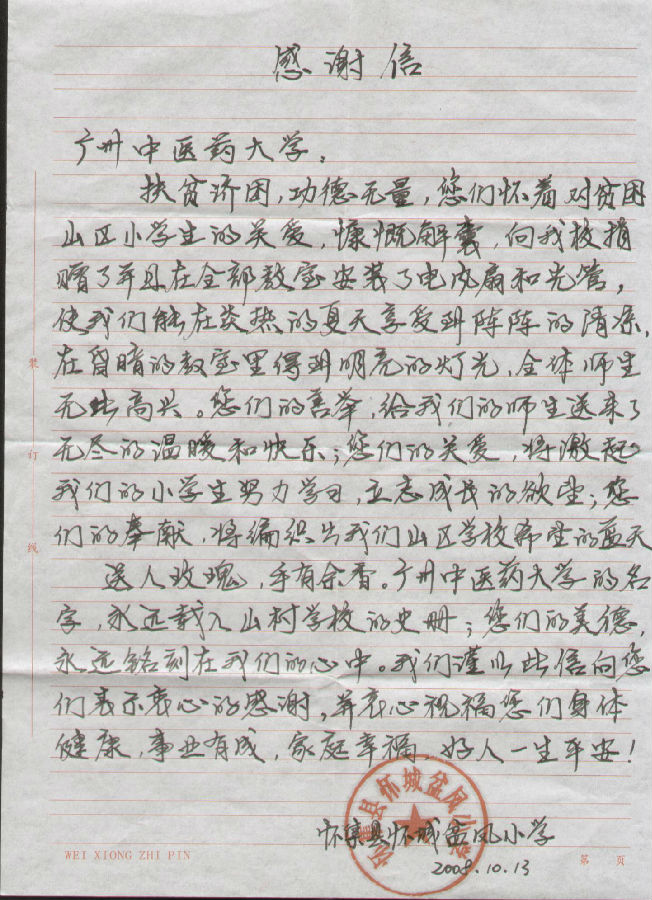 感谢信
广州中医药大学:
扶贫济困,功德无量,您们怀着对贫困
山区小学生的关爱,慷慨解囊,向我校捐
赠了并且在全部教室安装了电风扇和光管,
使我们能在炎热的夏天享受到阵阵的清凉,
在昏暗的教室里得到明亮的灯光,全体师生
无比高兴。您们的善举,给我们的师生送来了
无尽的温暖和快乐;您们的关爱,将激起
我们的小学生努力学习,立志成长的欲望;您
们的奉献,将编织出我们山区学校希望的蓝天
送人玫瑰,手有余香。广州中医药大学的名
字,永远载入山村学校的史册;您们的美德,
永远铭刻在我们的心中。我们谨以此信向您
们表示衷心的感谢,并衷心祝福您们身体
健康,事业有成,家庭幸福,好人一生平安!
怀集县怀城盆凤小学
怀集县怀城盆凤小学
2008.10.13
装
订
线
WEI XIONG ZHI PIN
第 页